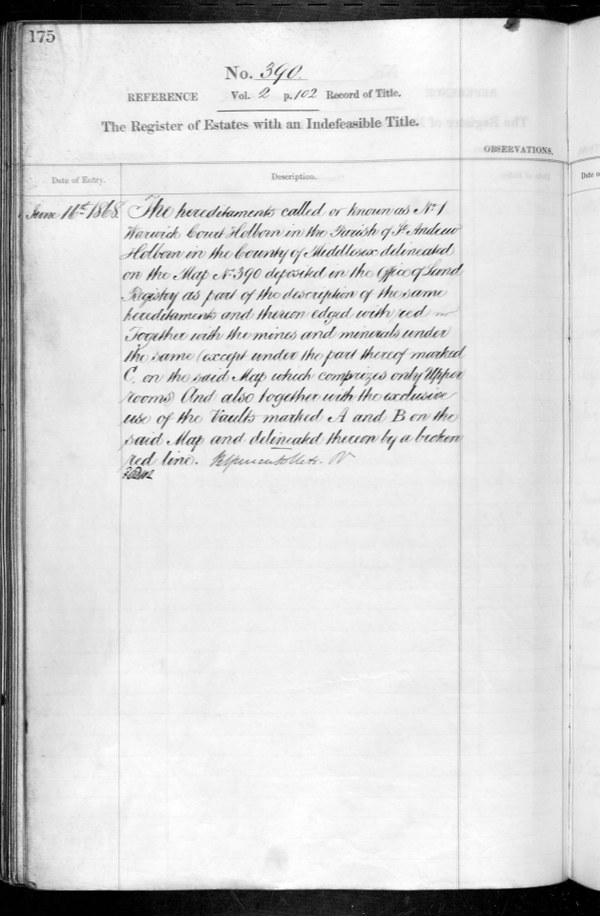 175
No. 390.
REFERENCE Vol. 2 p. 102 Record of Title.
The Register of Estates with an Indefeasible Title.
OBSERVATIONS.
Date of Entry.
Description.
Date o
June 16th 1868.
The hereditaments called or known as No. 1
Warwick Court Holborn in the Parish of St Andrew
Holborn in the County of Middlesex delineated
on the Map No. 390 deposited in the Office of Land
Registry as part of the description of the same
hereditaments and thereon edged with red
Together with the mines and minerals under
the same (except under the part thereof marked
C. on the said Map which comprizes only Upper
rooms) And also together with the exclusive
use of the Vaults marked A and B on the
said Map and delineated thereon by a broken
red line.